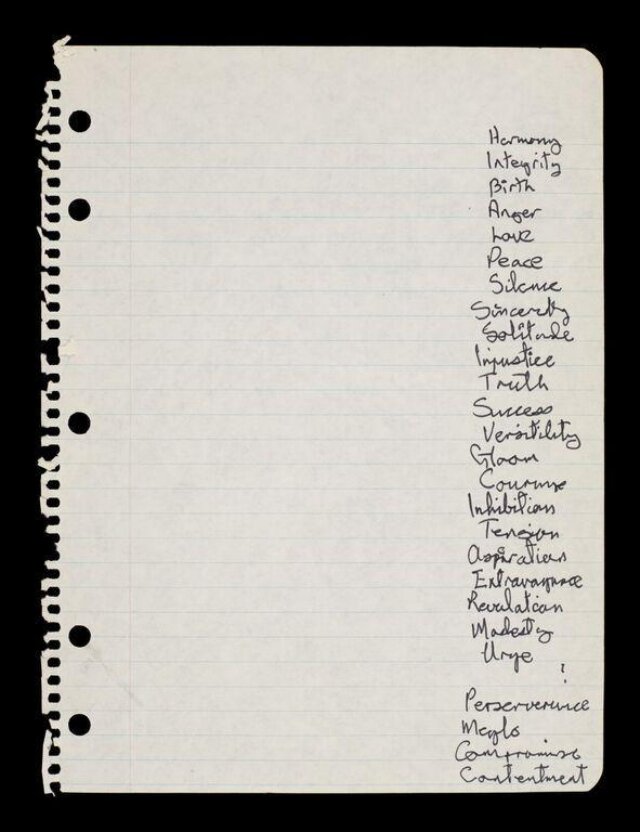 Harmony
Integrity
Birth
Anger
Love
Peace
Silence
Sincerity
Solitude
Injustice
Truth
Success
Versitility
Gloom
Courage
Inhibition
Tension
Aspiration
Extravagance
Revalation
Modesty
Urge
?
Perserverince
Compromise
Contentment